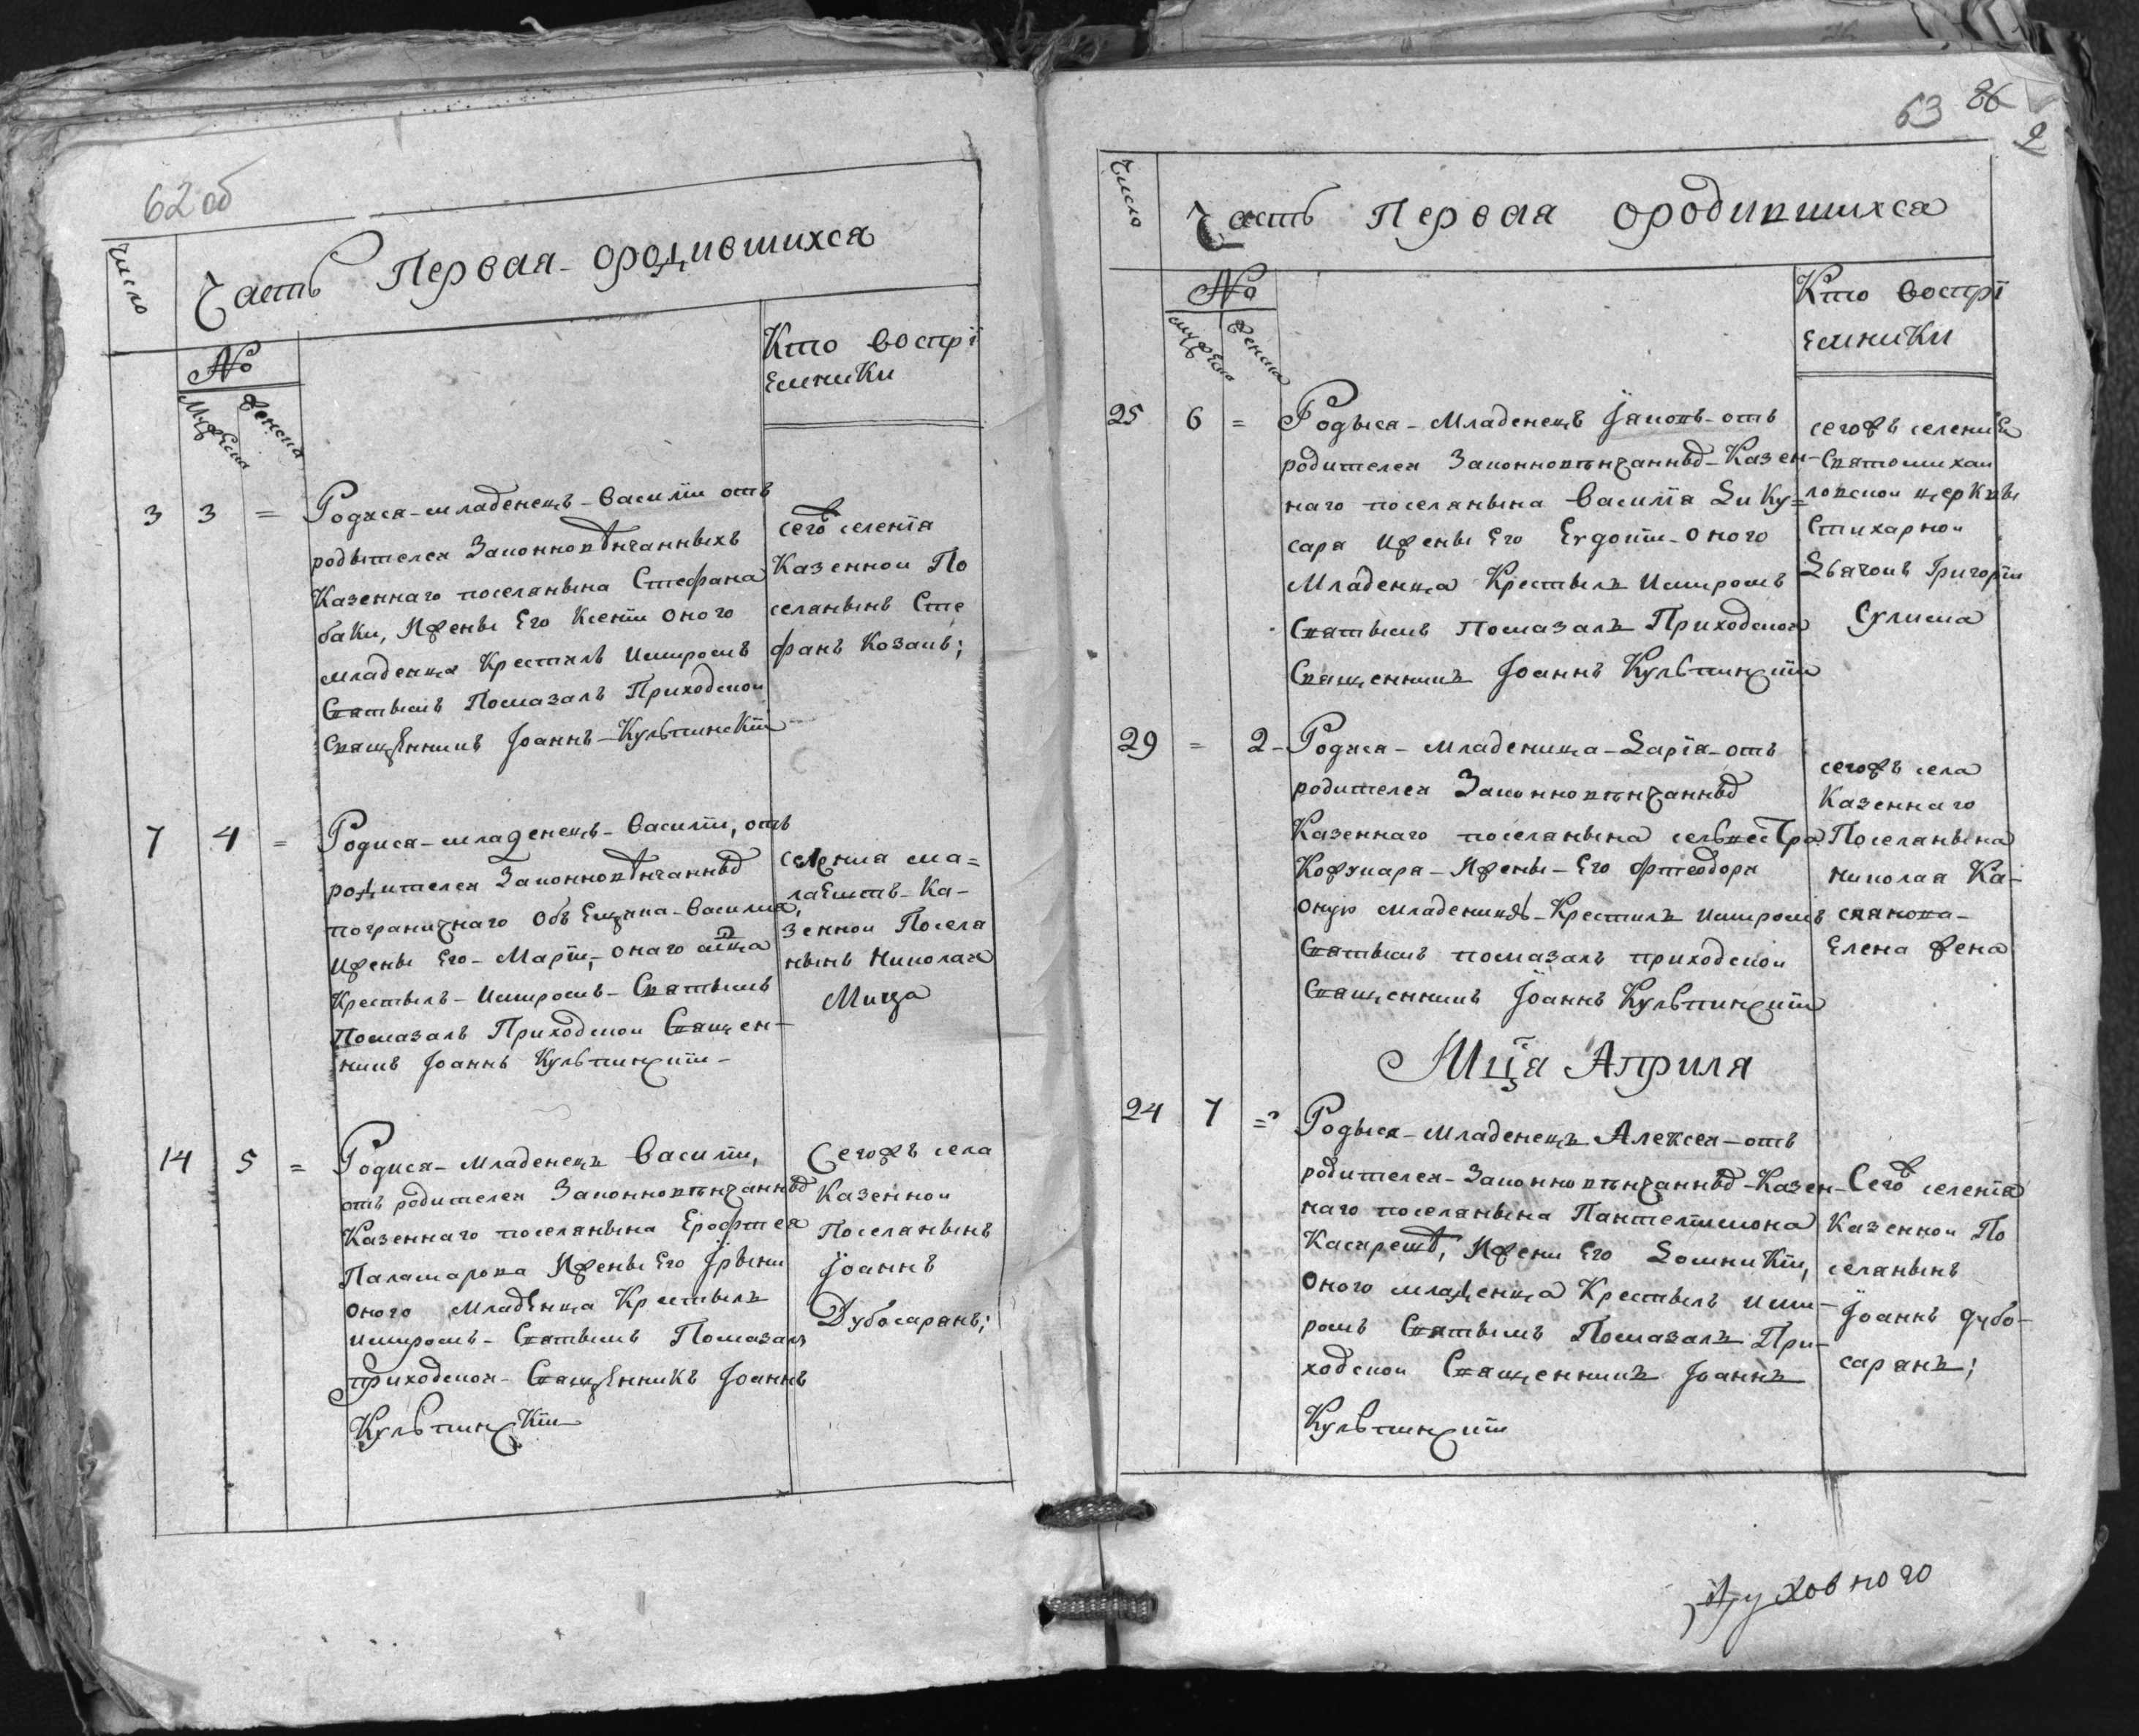 62 об
Число
Часть Первая ородившихся
№
Кто воспрі
емники
Мужеска
женска
3 3 = Родися младенецъ Василїи отъ
родытелеи Законновѣнчанныхъ
Казеннаго поселянына Стефана
баки, Иженьі Его Ксенїи оного
младенца Крестилъ Имиромъ
Святымъ Помазалъ Приходскои
Священникъ Іоаннъ Кульпинскїи
сего селенїя
Казеннои По
селянынъ Сте
фанъ Козакъ;
7 4 = Родися младенецъ Василїи, отъ
родителеи Законновѣнчанныхъ
пограничнаго Объещика Василия,
Иженьі Его Марїи, онаго мцa
Крестылъ Имиромъ Святымъ
Помазалъ Приходскои Священ-
никъ Іоаннъ Кульпинскїи
селения ма=
лаештъ Ка-
зеннои Посела
нынъ Николаи
Мица
14 5 = Родися Младенецъ Василїи,
отъ родителеи Законновѣнчанныхъ
Казеннаго поселянына Ерофтея
Паламарюка Иженьі Его Ірыни
оного Младенца Крестылъ
имиромъ Святымъ Помазалъ
приходскои Священникъ Іоаннъ
Кульпинскїи
Сегожъ села
Казеннои
Поселянынъ
Іоаннъ
Дубосарянъ;
63 86
2
Число
Часть Первая ородившихся
№
Кто воспрі
емники
мужеска
женска
25 6 = Родыся Младенецъ Іаковъ отъ
родителеи Законновѣнчанныхъ Казен-
наго поселянына Василїя Дику=
сара Иженьі Его Евдокїи оного
Младенца Крестылъ Имиромъ
Святымъ Помазалъ Приходскои
Священникъ Іоаннъ Кульпинскїи
сегожъ селения
Святомихаи
ловскои церкви
Стихарнои
Дьячокъ Григорїи
Сулима
29 = 2 Родися Младеница Дарїя отъ
родителеи Законновѣнчанныхъ
Казеннаго поселянына сельвестра
Кожукаря Иженьі Его Фтеодоры
оную младеницу Крестилъ Имиромъ
Святымъ помазалъ приходскои
Священникъ Іоаннъ Кульпинскїи
сегожъ села
Казеннаго
Поселянына
Николая Ка-
Елена жена
Мц҃а Априля
24 7 = Родыся Младенецъ Алексеи отъ
родителеи Законновѣнчанныхъ Казен-
наго поселянына Пантелїимона
Иженьі Его Домникїи,
Оного младенца Крестылъ Ими-
ромъ Святымъ Помазалъ При-
ходскои Священникъ Іоаннъ
Кульпинскїи
Сего селенїя
Казеннои По
селянынъ
Іоаннъ дубо-
сарянъ;
Духовного